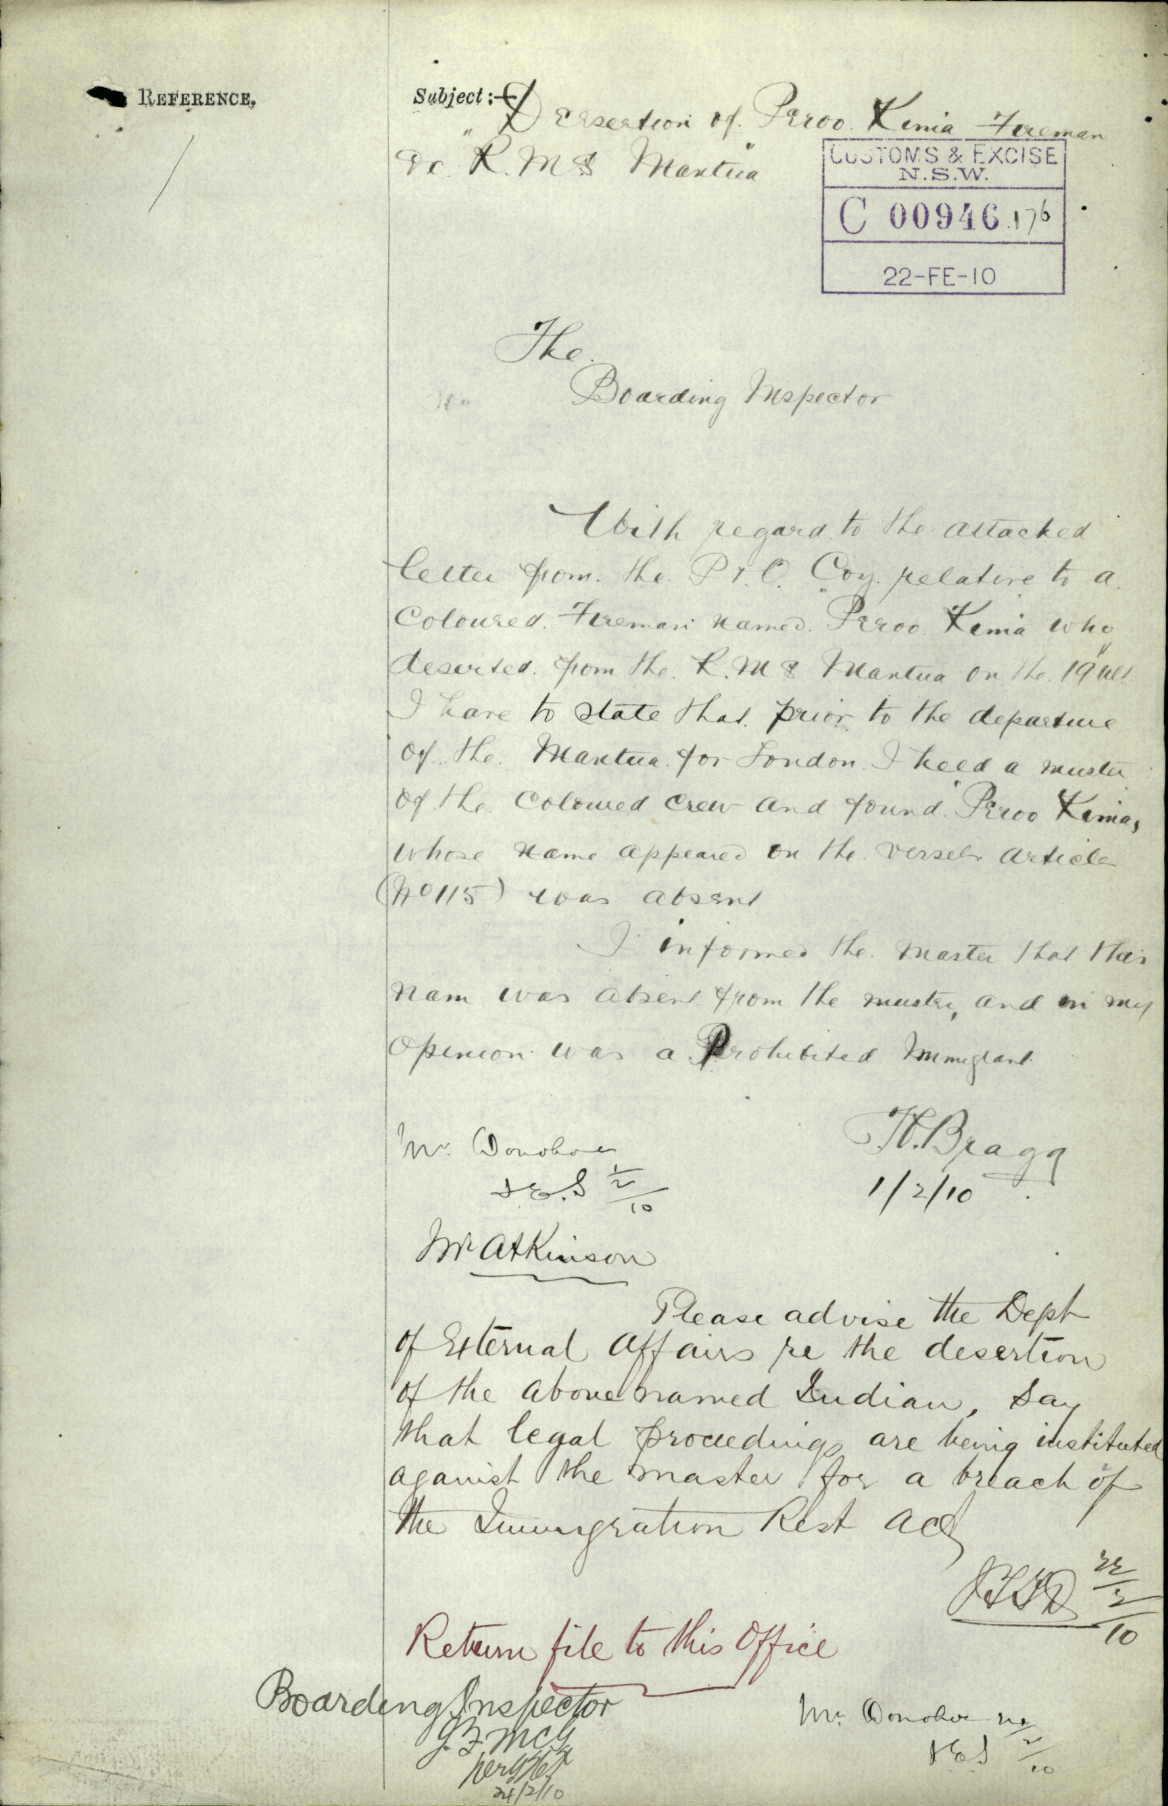 REFERENCE.
Subject:— Desertion of Peroo Kimia Fireman
ex "R.M.S Mantua"
CUSTOMS & EXCISE
N.S.W.
C 00946 176
22-FE-10
The
Boarding Inspector
With regard to the attached
letter from the P & O. Coy. relative to a
Coloured Fireman named Peroo Kimia who
deserted from the R.M.S Mantua on the 19" ult
I have to state that prior to the departure
of the Mantua for London I held a muster
of the coloured crew and found Peroo Kimia,
whose name appeared on the vessels articles
(No 115) was absent
I informed the Master that this
nam was absent from the muster, and in my
opinion was a Prohibited Immigrant
H. Bragg
1/2/10
Mr. Donohoe
1/2/10
Mr Atkinson
Please advise the Dept
of External Affairs re the desertion
of the abovenamed Indian, Say
that legal proceedings are being instituted
against the master for a breach of
the Immigration Rest Act
22/2/10
Return file to this Office
Boarding Inspector
J.F. McG
per
24/2/10
Mr. Donohoe